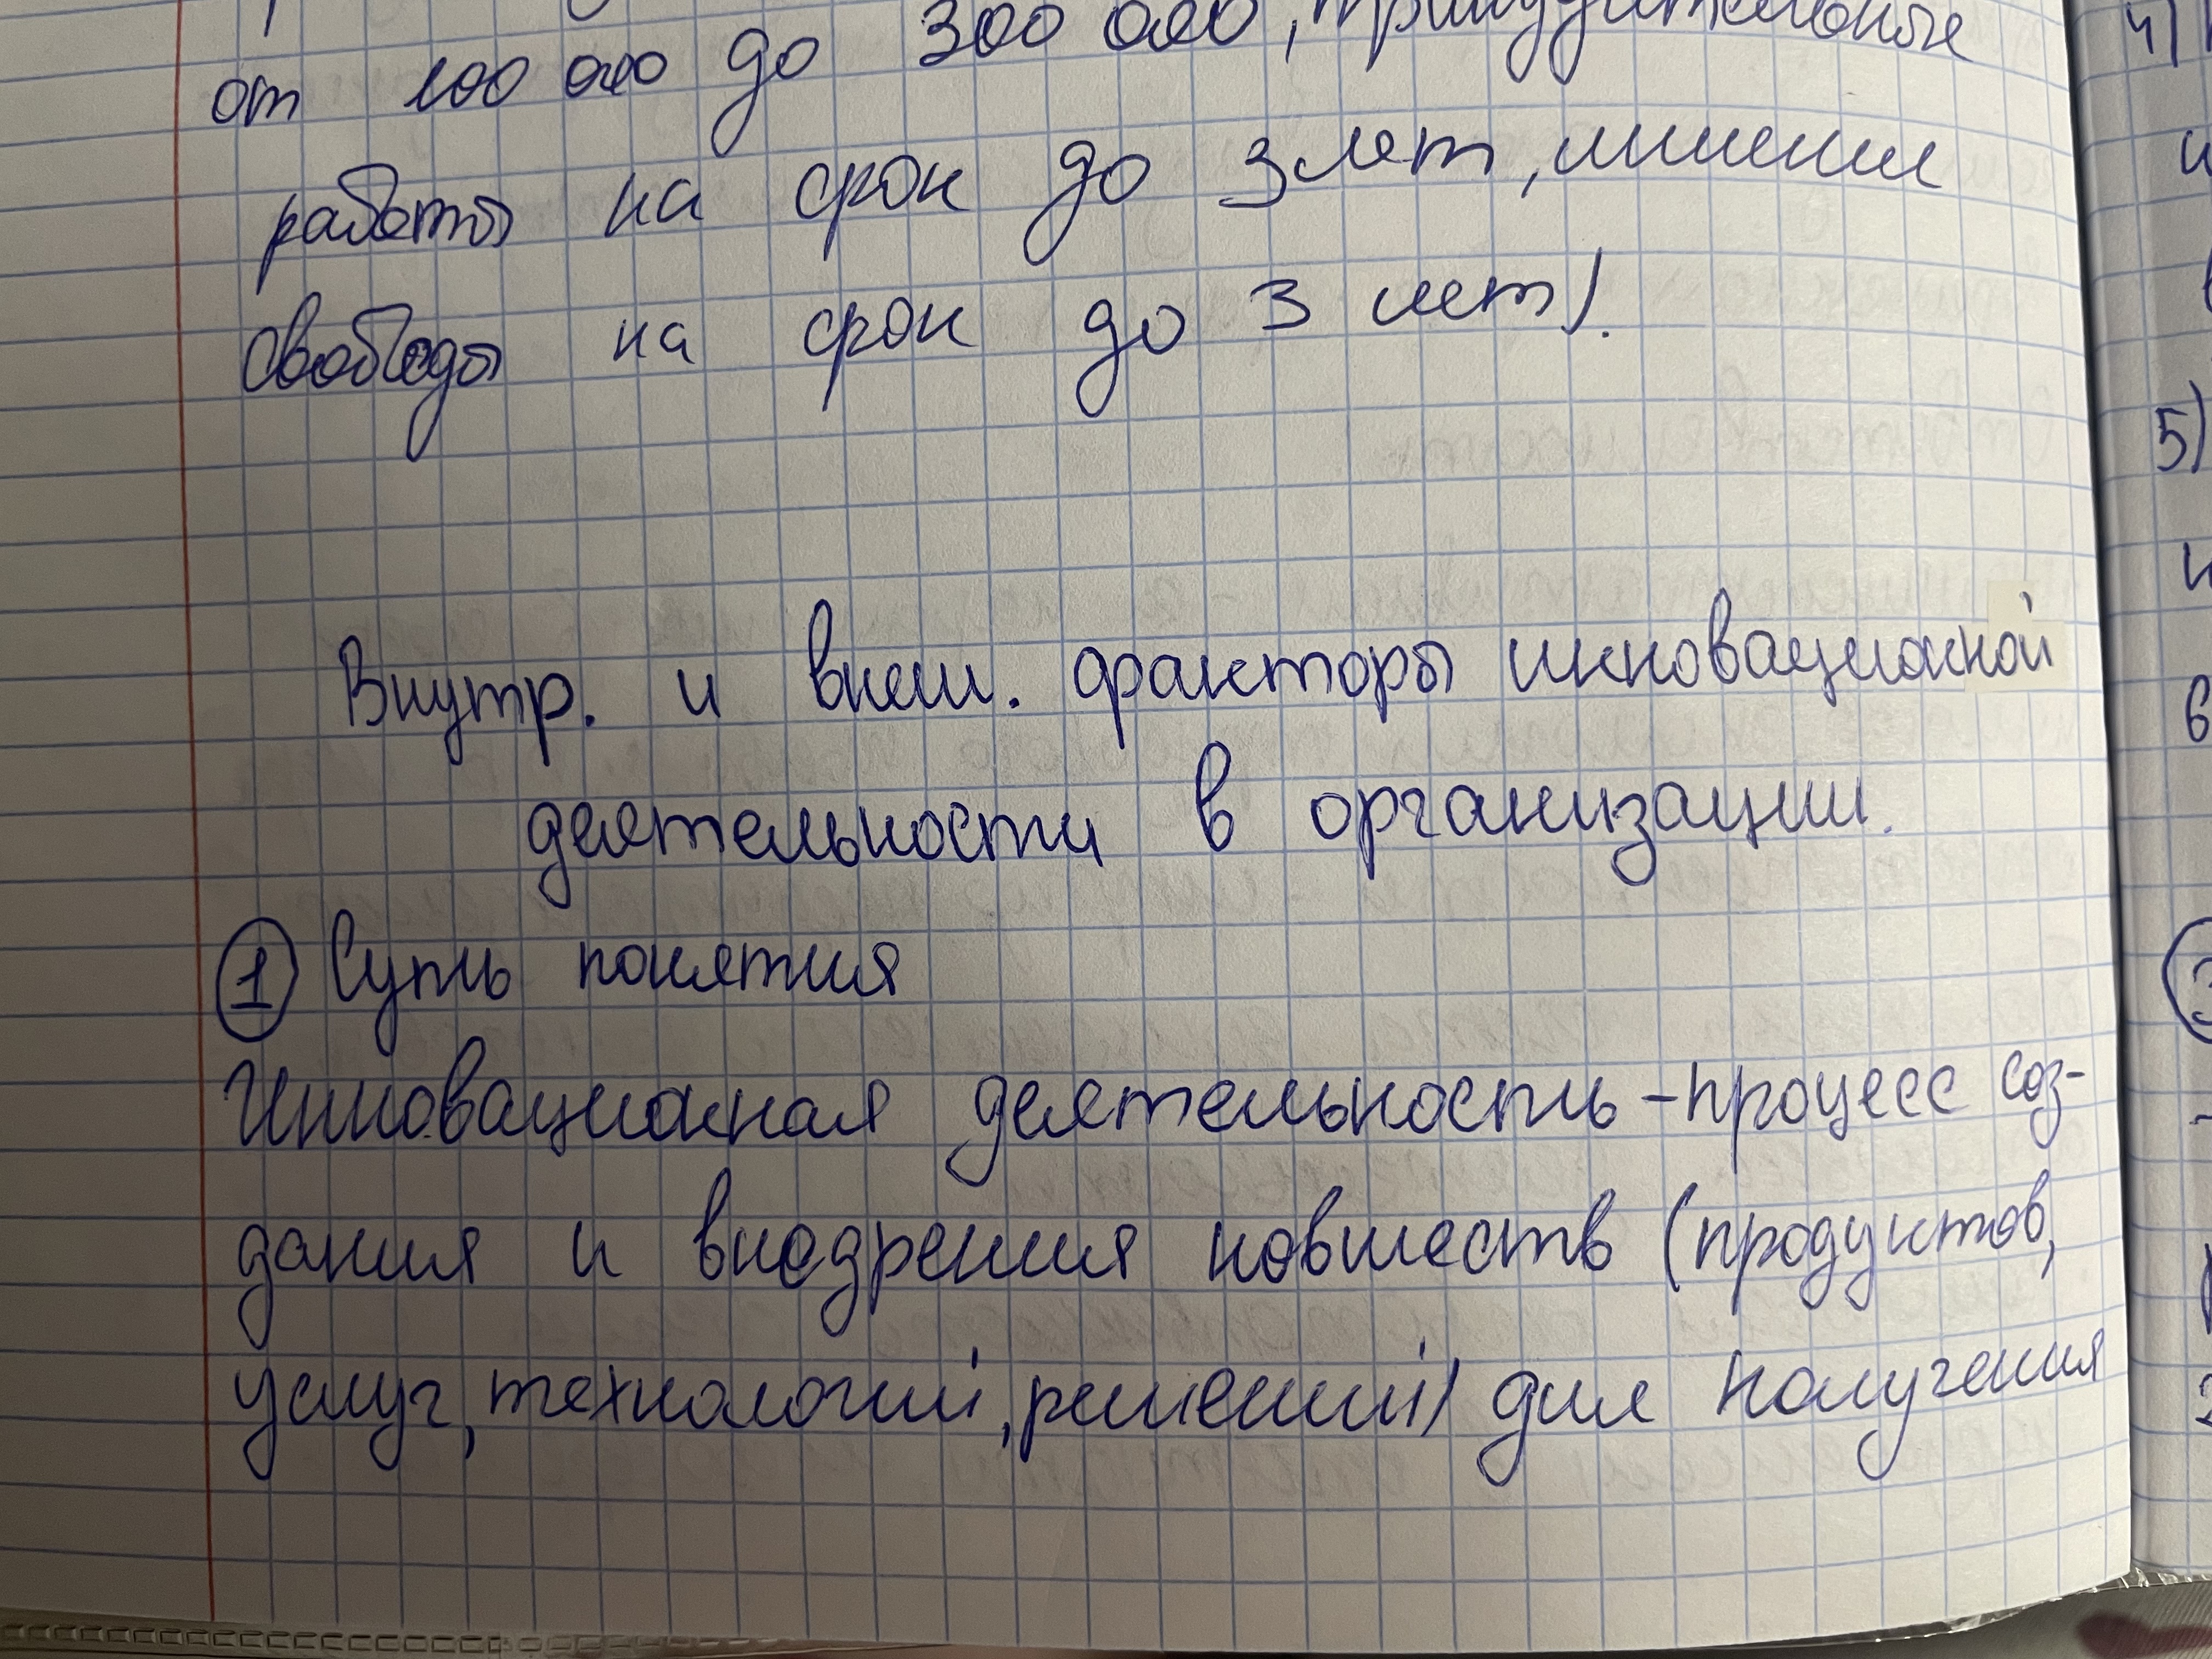 от 100 000 до 300 000, принудительные
работы на срок до 3 лет, лишении
свободы на срок до 3 лет).
Внутр. и внеш. факторы инновационной
деятельности в организации.
1 Суть понятия
Инновационная деятельность - процесс соз-
дания и внедрения новшеств (продуктов,
услуг, технологий, решений) для получения
4)
5)